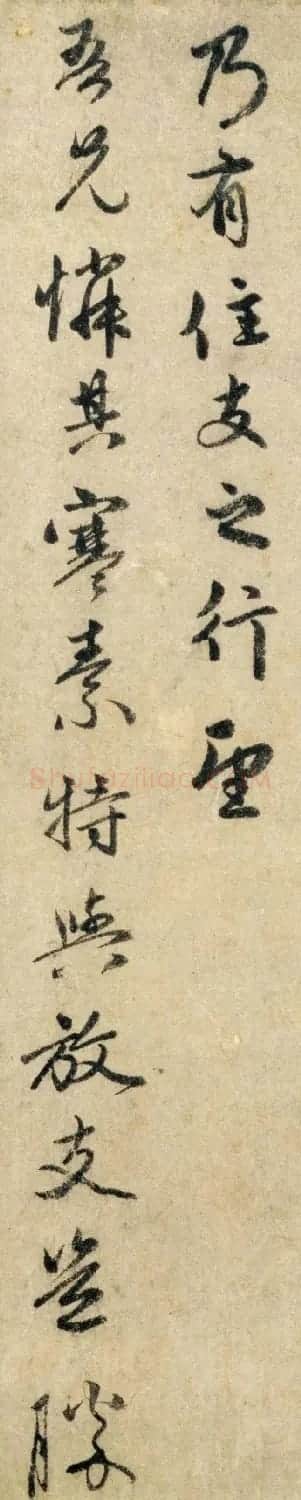 乃有住支之行望
吾兄憐其寒素特與放支豈勝